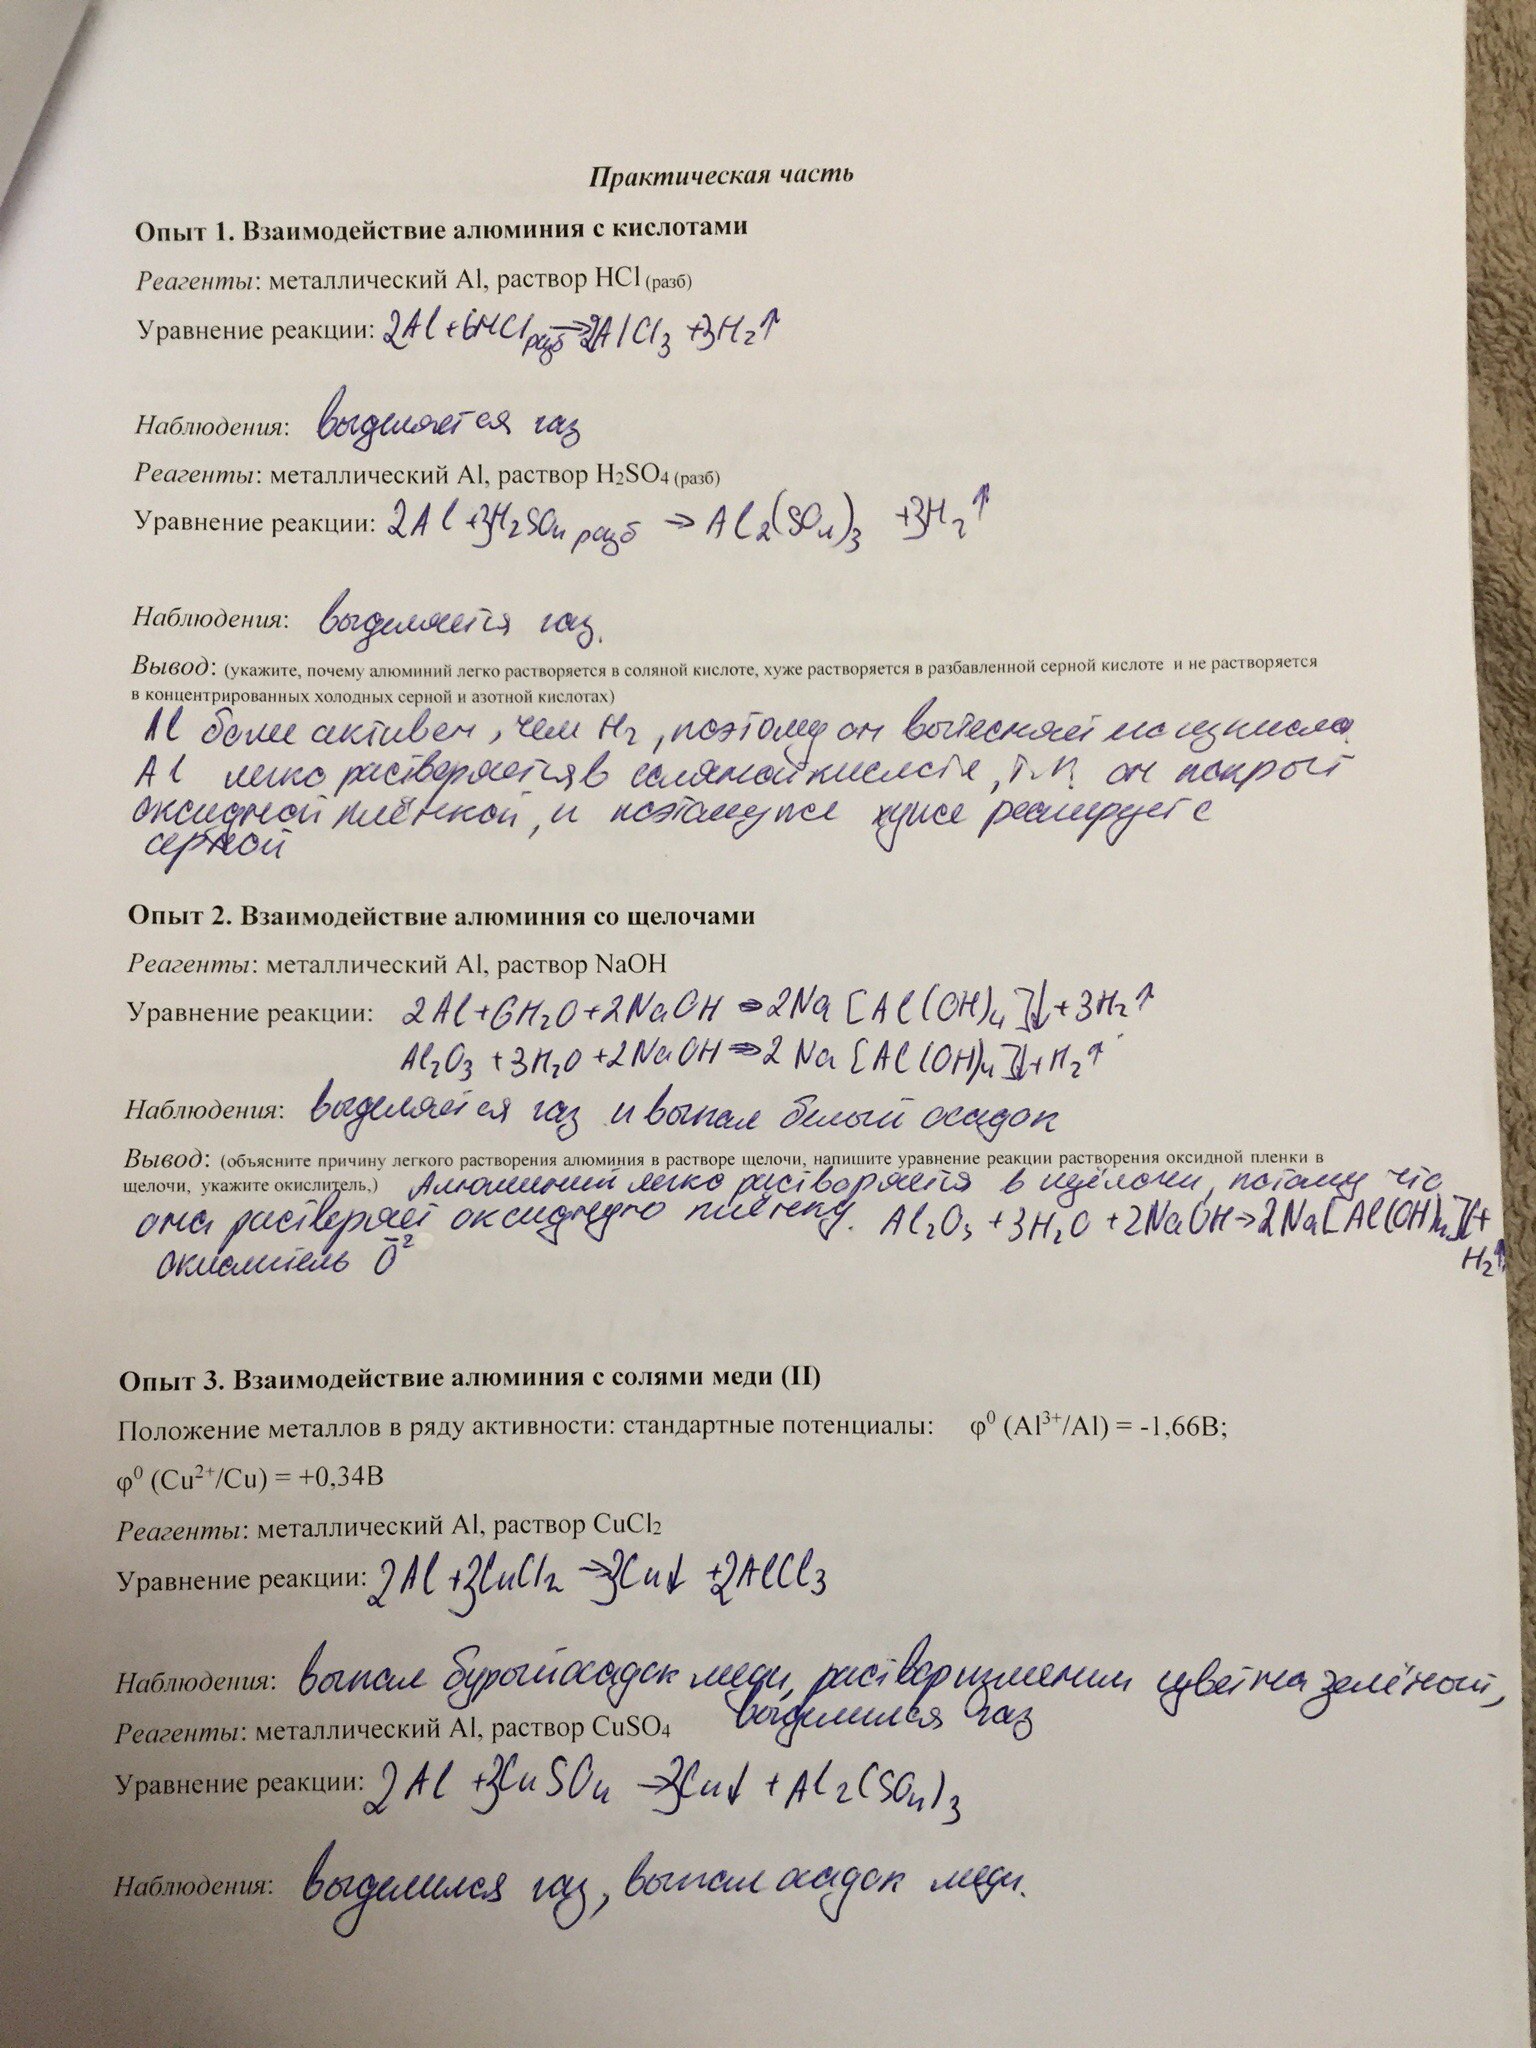 Практическая часть
Опыт 1. Взаимодействие алюминия с кислотами
Реагенты: металлический Al, раствор HCl (разб)
Уравнение реакции: 2Al + 6HCl разб → 2AlCl₃ + 3H₂↑
Наблюдения: выделяется газ
Реагенты: металлический Al, раствор H₂SO₄ (разб)
Уравнение реакции: 2Al + 3H₂SO₄ разб → Al₂(SO₄)₃ + 3H₂↑
Наблюдения: выделяется газ.
Вывод: (укажите, почему алюминий легко растворяется в соляной кислоте, хуже растворяется в разбавленной серной кислоте и не растворяется
в концентрированных холодных серной и азотной кислотах)
Al более активен, чем H₂, поэтому он вытесняет
Al легко растворяется в соляной кислоте, т.к. он покрыт
оксидной плёнкой, и поэтому же хуже реагирует с
серной
Опыт 2. Взаимодействие алюминия со щелочами
Реагенты: металлический Al, раствор NaOH
Уравнение реакции: 2Al + 6H₂O + 2NaOH → 2Na[Al(OH)₄]↓ + 3H₂↑
Al₂O₃ + 3H₂O + 2NaOH → 2Na[Al(OH)₄]↓ + H₂↑
Наблюдения: выделяется газ и выпал белый осадок
Вывод: (объясните причину легкого растворения алюминия в растворе щелочи, напишите уравнение реакции растворения оксидной пленки в
щелочи, укажите окислитель,) Алюминий легко растворяется в щёлочи, потому что
она растворяет оксидную плёнку. Al₂O₃ + 3H₂O + 2NaOH → 2Na[Al(OH)₄]↓ +
H₂↑
окислитель O⁻²
Опыт 3. Взаимодействие алюминия с солями меди (II)
Положение металлов в ряду активности: стандартные потенциалы: φ⁰ (Al³⁺/Al) = -1,66В;
φ⁰ (Cu²⁺/Cu) = +0,34В
Реагенты: металлический Al, раствор CuCl₂
Уравнение реакции: 2Al + 3CuCl₂ → 3Cu↓ + 2AlCl₃
Наблюдения: выпал бурый осадок меди, раствор изменил цвет на зелёный,
выделился газ
Реагенты: металлический Al, раствор CuSO₄
Уравнение реакции: 2Al + 3CuSO₄ → 3Cu↓ + Al₂(SO₄)₃
Наблюдения: выделился газ, выпал осадок меди.